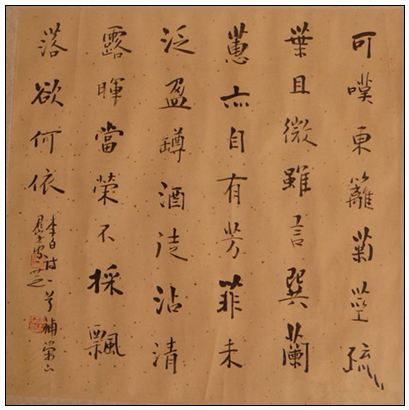 可嘆東籬菊莖疏
葉且微雖言異蘭
蕙亦自有芳菲未
泛盈罇酒徒沾清
露暉當榮不採飄
落欲何依
李白诗